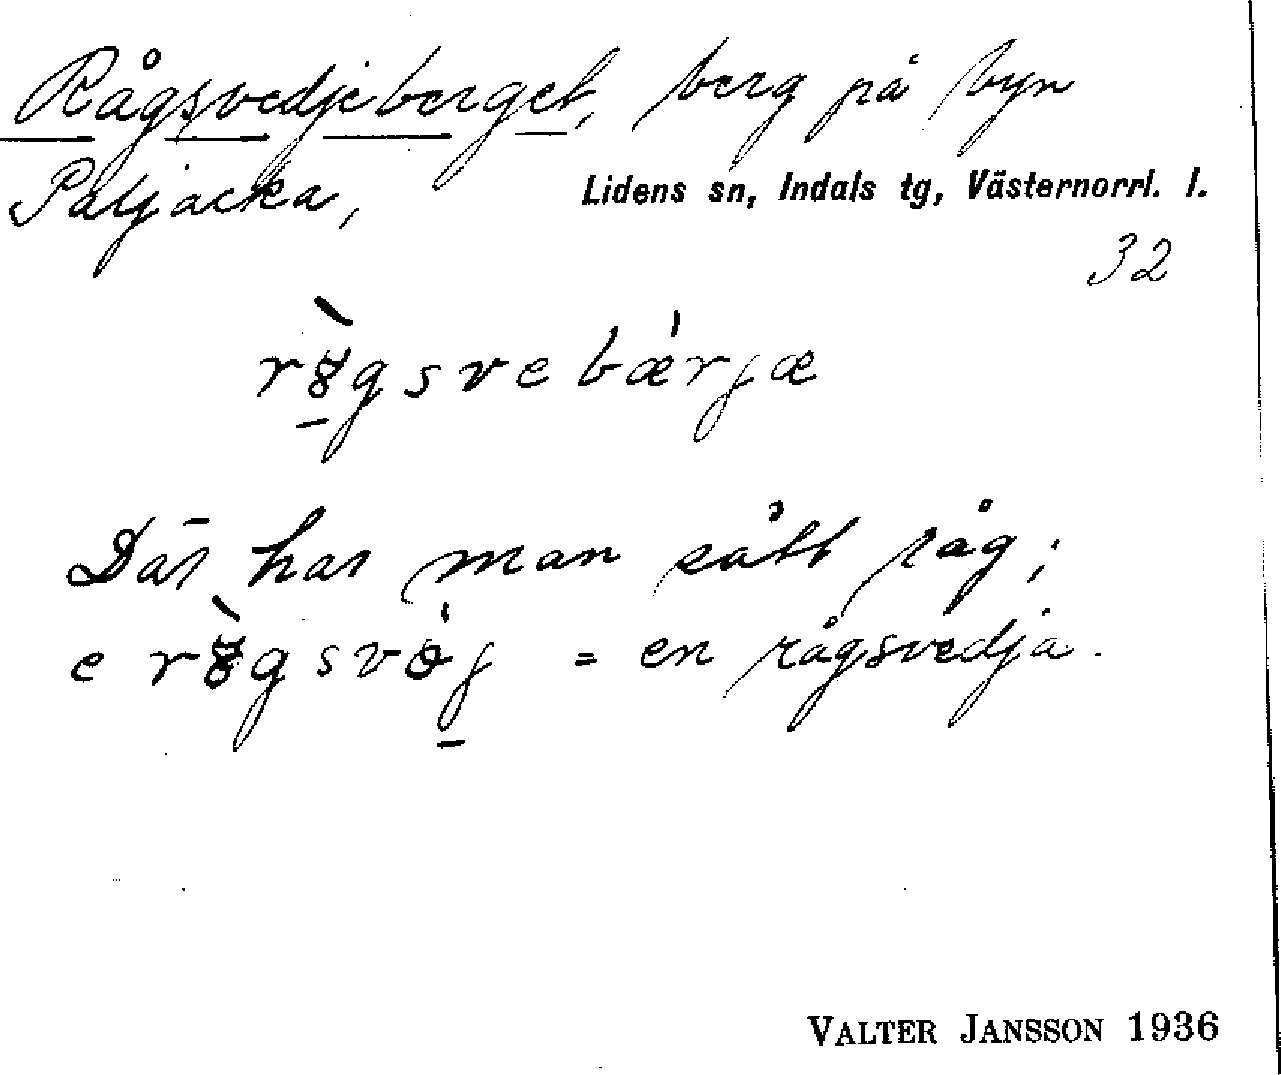 Rågsvedjeberget, berg på byn
Påljacka,
Lidens sn, Indals tg, Västernorrl. l.
32
rȣ̀gsvebǽrjæ
Där har man sått råg;
e rȣ̀gsvǿj = en rågsvedja.
VALTER JANSSON 1936